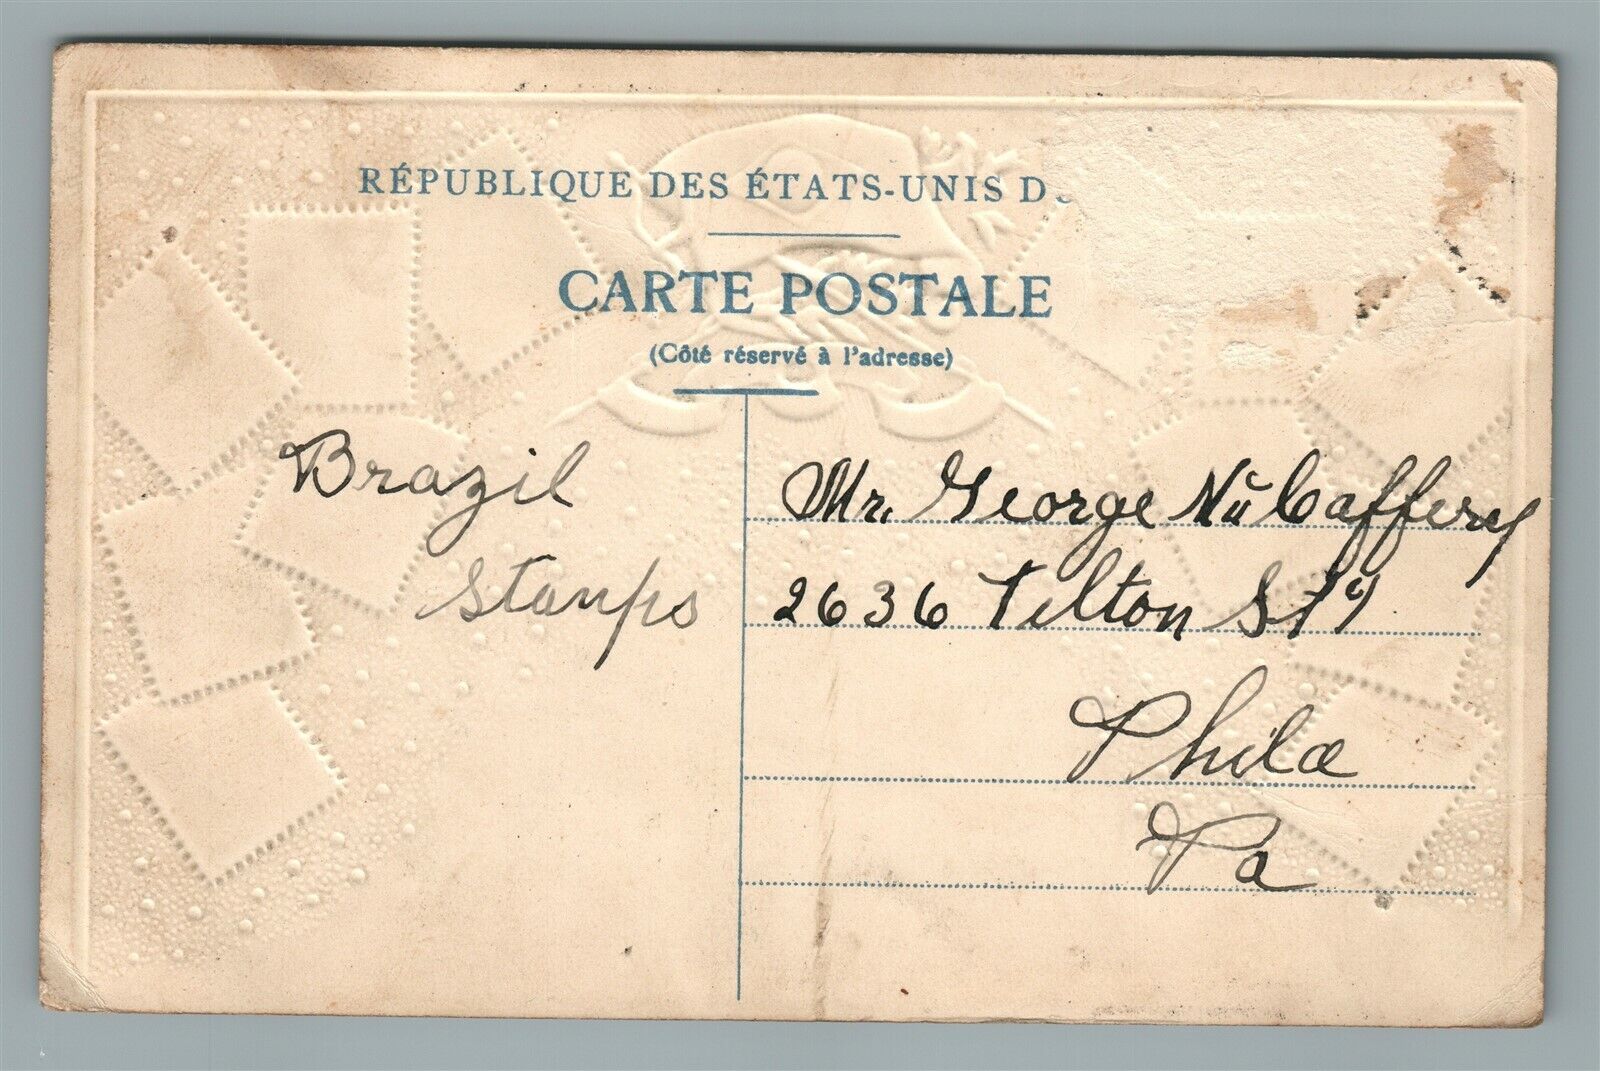 RÉPUBLIQUE DES ÉTATS-UNIS D
CARTE POSTALE
(Côté réservé à l'adresse)
Brazil
Stamps
Mr. George
2636 Tilton St
Phila
Pa